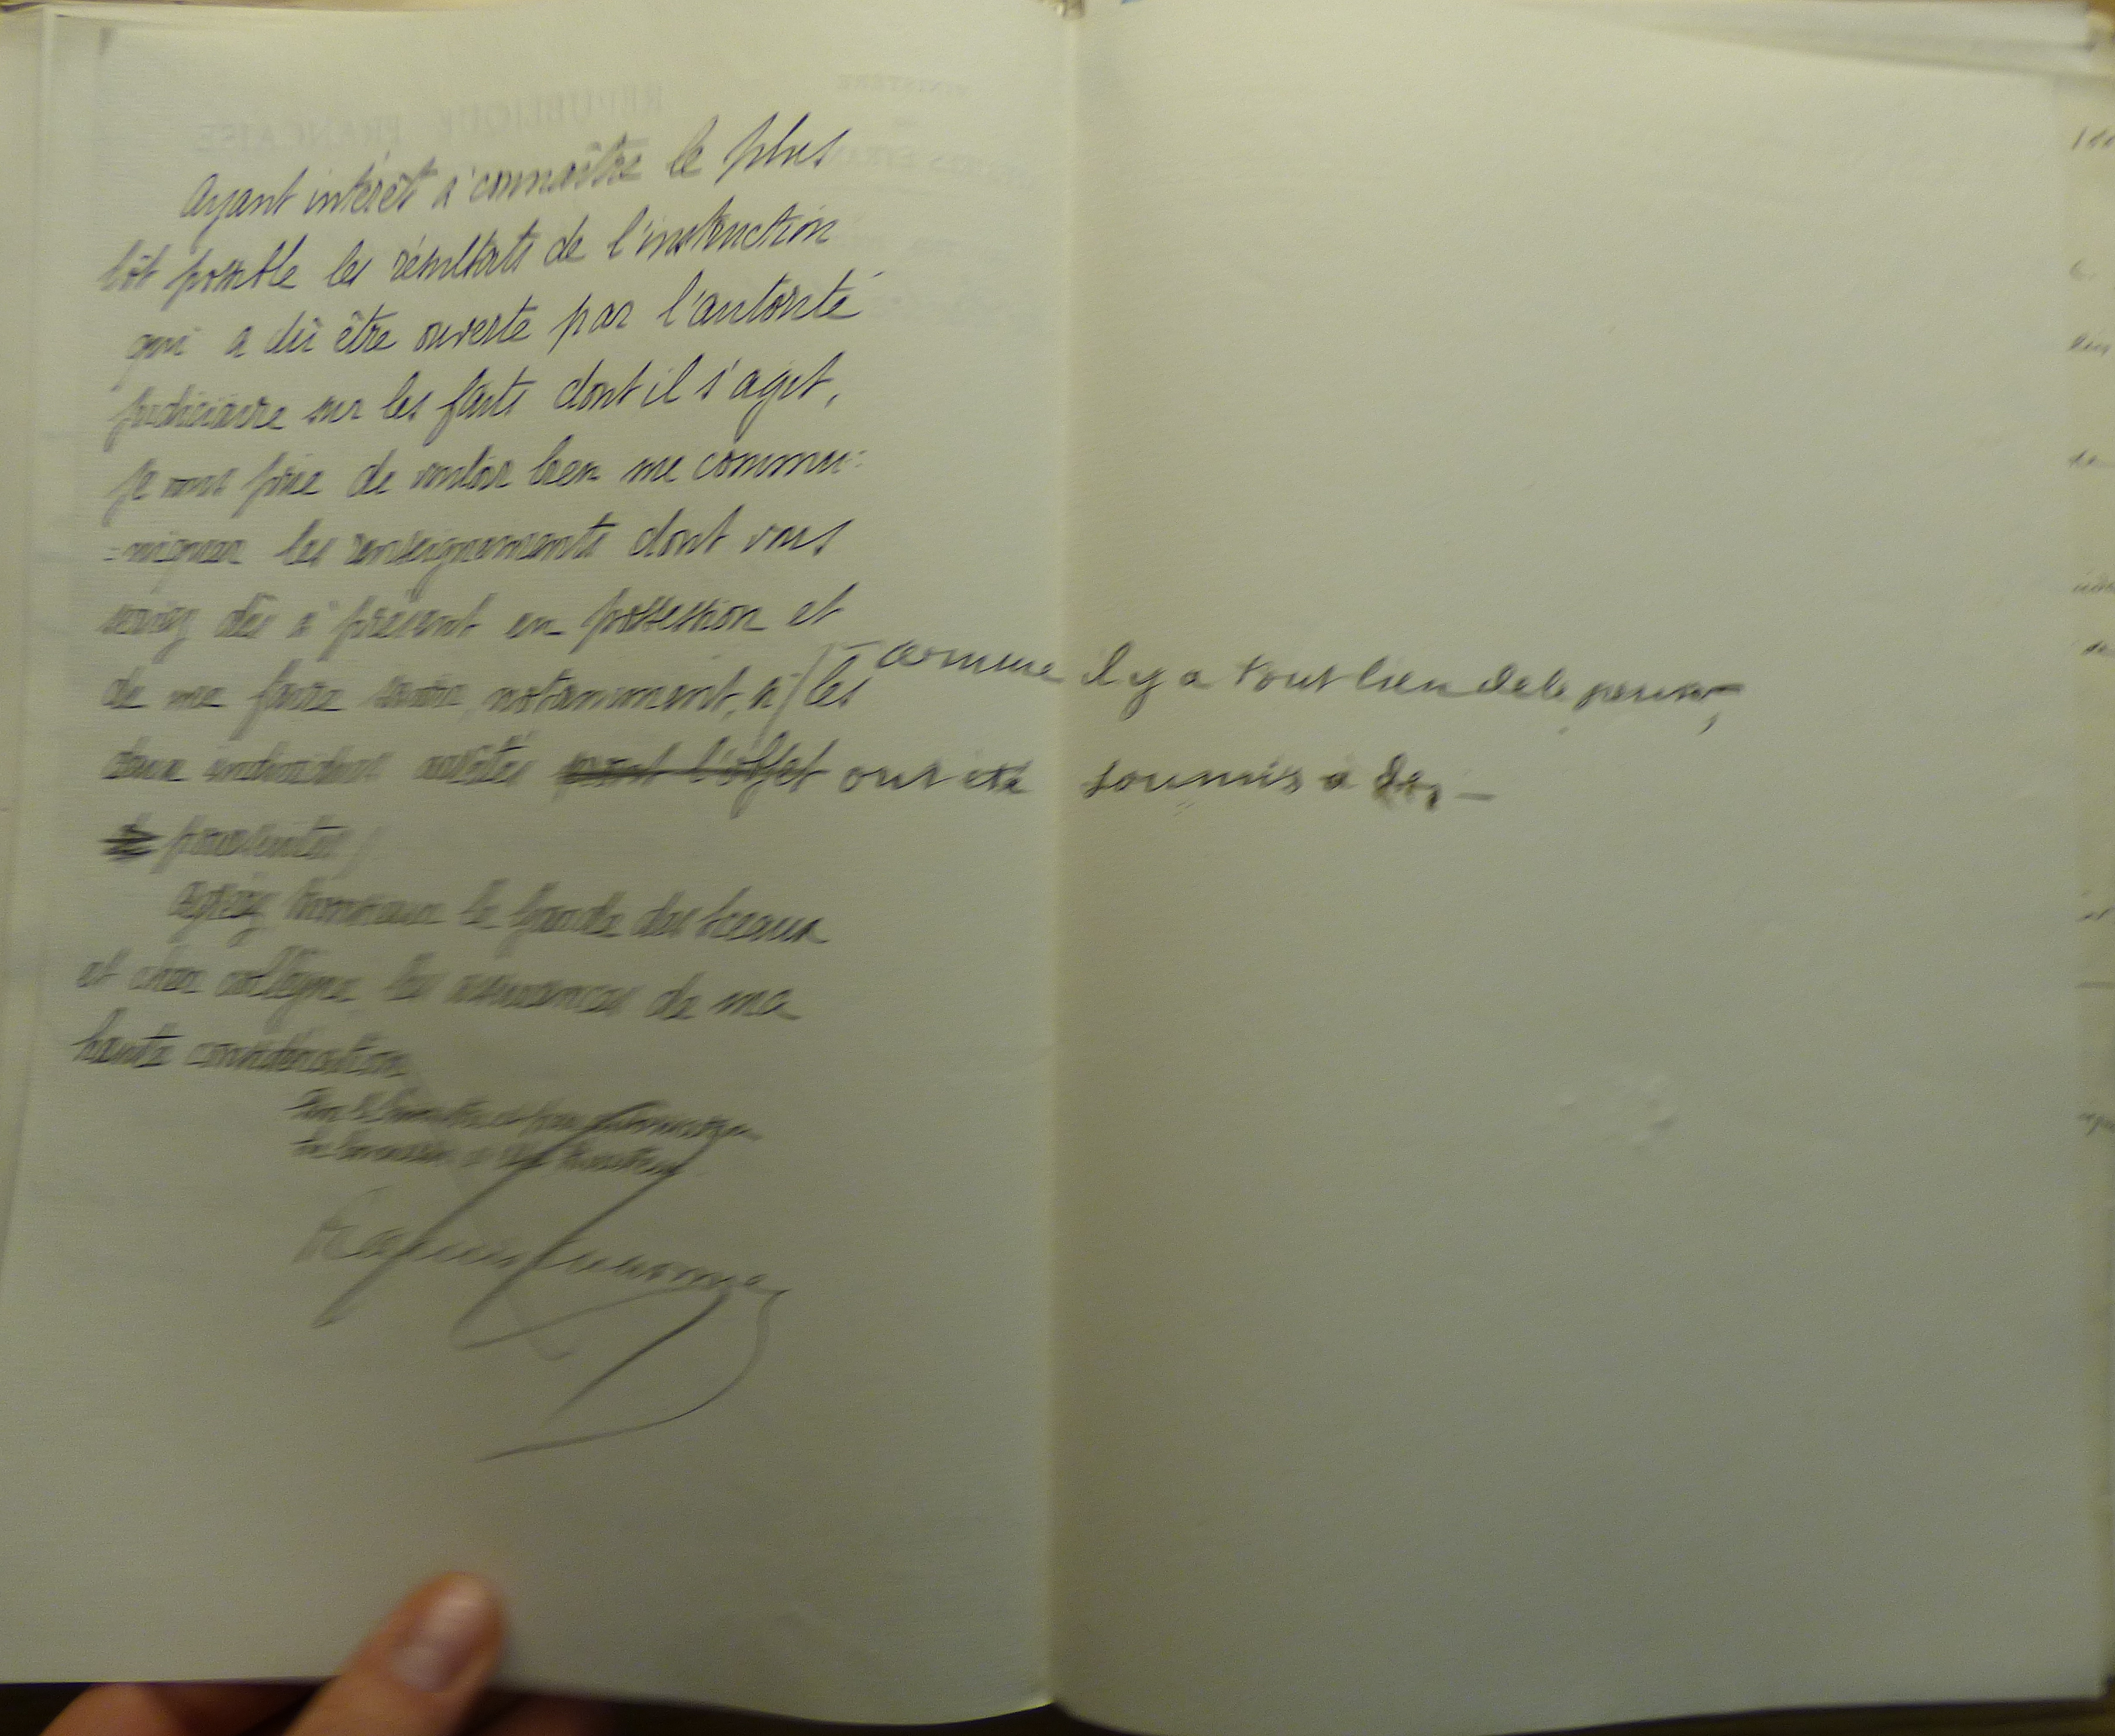 Ayant intérêt à connaître le plus
tôt possible les résultats de l'instruction
qui a dû être ouverte par l'autorité
judiciaire sur les faits dont il s'agit,
je vous prie de vouloir bien me commu-
-niquer les renseignements dont vous
seriez dès à présent en possession et
de me faire savoir, notamment, si / les
– comme il y a tout lieu de le penser,
deux individus arrêtés sont l'objet ont été soumis à des –
de poursuites /
Agréez, Monsieur le Garde des Sceaux
et cher collègue, les assurances de ma
haute considération
Pour le Ministre et par autorisation